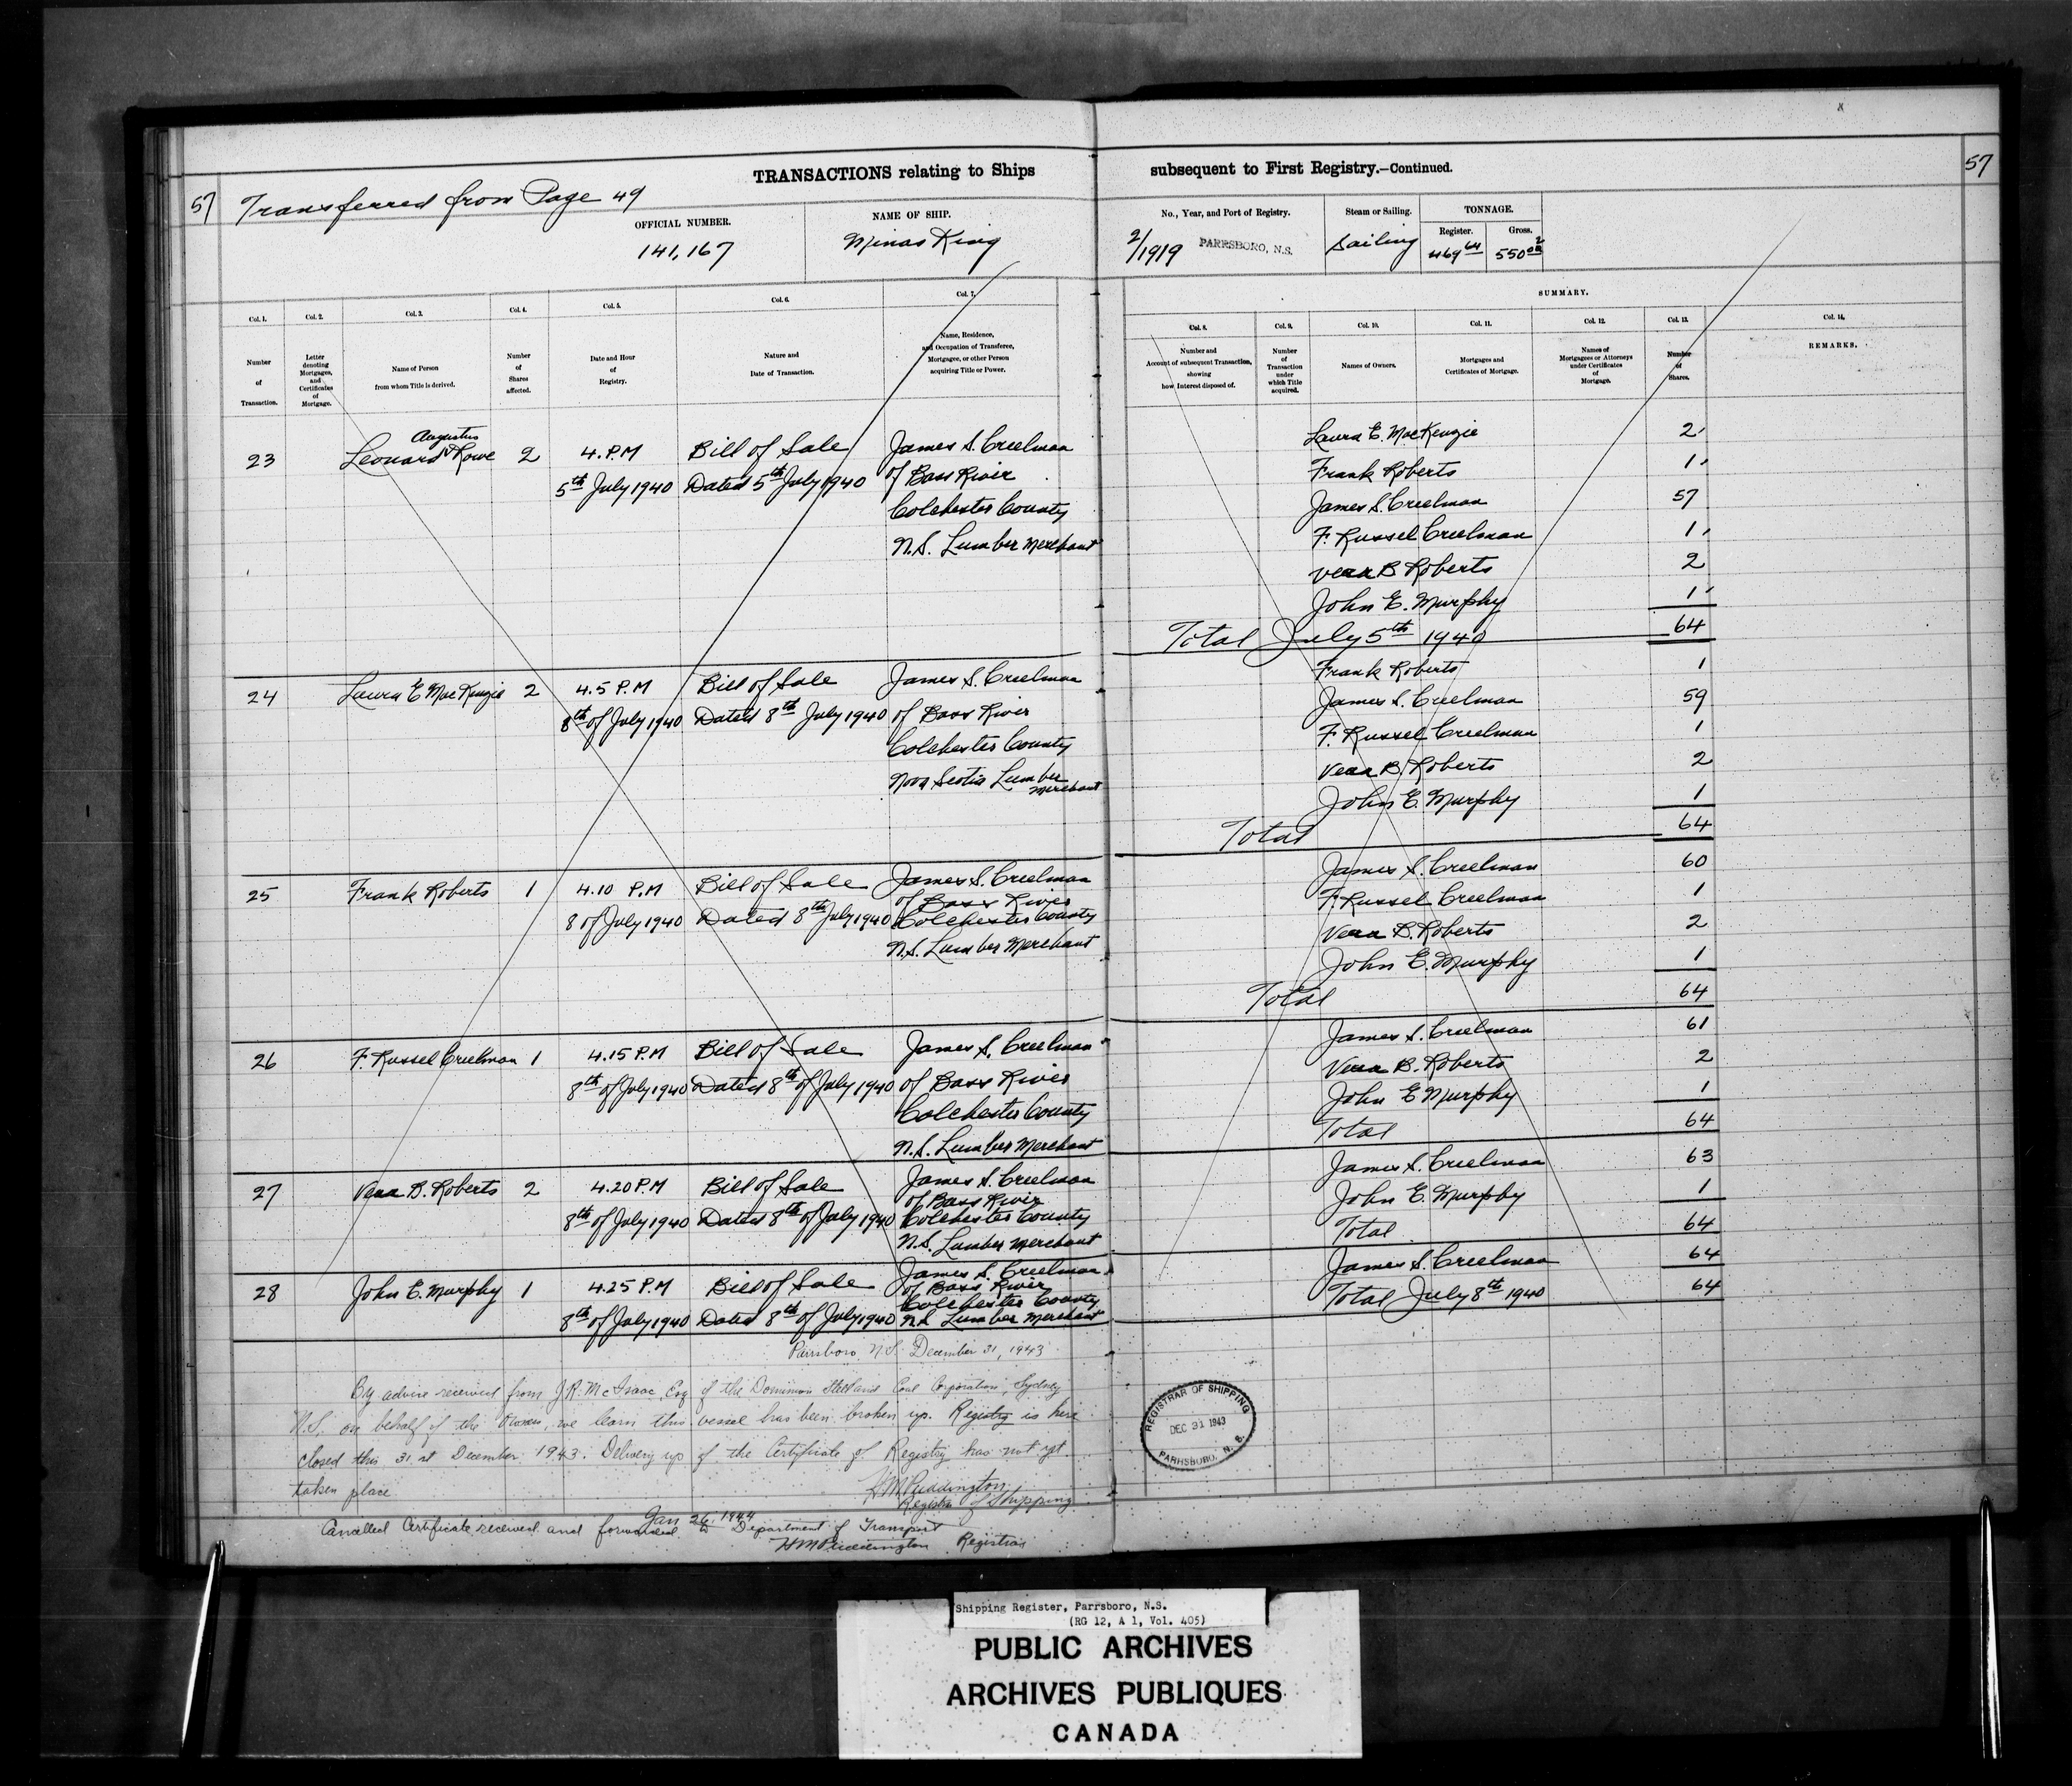 TRANSACTIONS relating to Ships subsequent to First Registry.—Continued.
57 Transferred from Page 49
57
OFFICIAL NUMBER.
141,167
NAME OF SHIP.
Minas King
No., Year, and Port of Registry.
2/1919 PARRSBORO, N.S.
Steam or Sailing.
Sailing
TONNAGE.
Register. Gross.
469 64 550 02
SUMMARY.
Col. 1. Col. 2. Col. 3. Col. 4. Col. 5. Col. 6. Col. 7.
Number of Transaction.
Letter denoting Mortgages, and Certificates of Mortgage.
Name of Person from whom Title is derived.
Number of Shares affected.
Date and Hour of Registry.
Nature and Date of Transaction.
Name, Residence, and Occupation of Transferee, Mortgagee, or other Person acquiring Title or Power.
Col. 8. Col. 9. Col. 10. Col. 11. Col. 12. Col. 13. Col. 14.
Number and Account of subsequent Transaction, showing how Interest disposed of.
Number of Transaction under which Title acquired.
Names of Owners.
Mortgages and Certificates of Mortgage.
Names of Mortgagees or Attorneys under Certificates of Mortgage.
Number of Shares.
REMARKS.
Augustus
23 Leonard Rowe 2 4.P.M Bill of Sale James S. Creelman
5th July 1940 Dated 5th July 1940 of Bass River
Colchester County
N.S. Lumber Merchant
Laura E. MacKenzie 2
Frank Roberts 1
James S. Creelman 57
F. Russel Creelman 1
Vera B Roberts 2
John E. Murphy 1
Total July 5th 1940 64
24 Laura E MacKenzie 2 4.5 P.M Bill of Sale James S. Creelman
8th of July 1940 Dated 8th July 1940 of Bass River
Colchester County
Nova Scotia Lumber
Merchant
Frank Roberts 1
James S. Creelman 59
F. Russel Creelman 1
Vera B. Roberts 2
John E. Murphy 1
Total 64
25 Frank Roberts 1 4.10 P.M Bill of Sale James S. Creelman
of Bass River
8 of July 1940 Dated 8th July 1940 Colchester County
N.S. Lumber Merchant
James S. Creelman 60
F. Russel Creelman 1
Vera B. Roberts 2
John E. Murphy 1
Total 64
26 F. Russel Creelman 1 4.15 P.M Bill of Sale James S. Creelman
8th of July 1940 Dated 8th of July 1940 of Bass River
Colchester County
N.S. Lumber Merchant
James S. Creelman 61
Vera B. Roberts 2
John E Murphy 1
Total 64
27 Vera B. Roberts 2 4.20 P.M Bill of Sale James S. Creelman
of Bass River
8th of July 1940 Dated 8th of July 1940 Colchester County
N.S. Lumber Merchant
James S. Creelman 63
John E. Murphy 1
Total 64
28 John E. Murphy 1 4.25 P.M Bill of Sale James S. Creelman
of Bass River
Colchester County
8th of July 1940 Dated 8th of July 1940 N.S. Lumber Merchant
James S. Creelman 64
Total July 8th 1940 64
Parrsboro N.S. December 31, 1943
By advice received from J.R. McIsaac, Esq of the Dominion Steel and Coal Corporation, Sydney
N.S. on behalf of the Owner, we learn this vessel has been broken up. Registry is here
closed this 31 st December 1943. Delivery up of the Certificate of Registry has not yet
taken place
H M Puddington
Registrar of Shipping
Jan 26, 1944
Cancelled Certificate received and forwarded to Department of Transport
H M Puddington Registrar
REGISTRAR OF SHIPPING
DEC 31 1943
PARRSBORO, N. S.
Shipping Register, Parrsboro, N.S.
(RG 12, A 1, Vol. 405)
PUBLIC ARCHIVES
ARCHIVES PUBLIQUES
CANADA